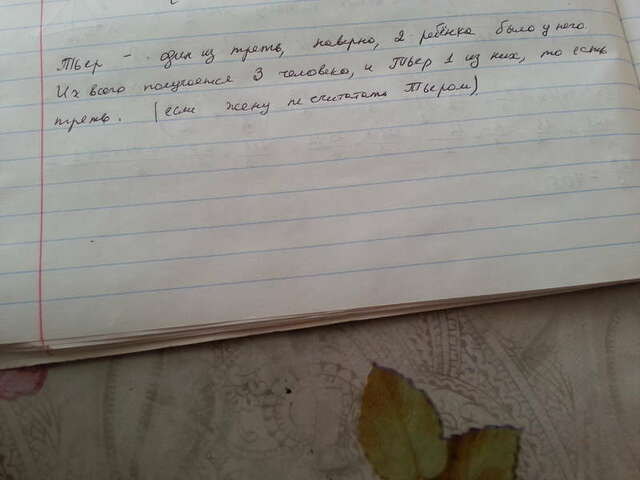 Тьер - один из треть, наверно, 2 ребёнка было у него.
Их всего получается 3 человека, и Тьер 1 из них, то есть
треть. (если жену не считать Тьером)